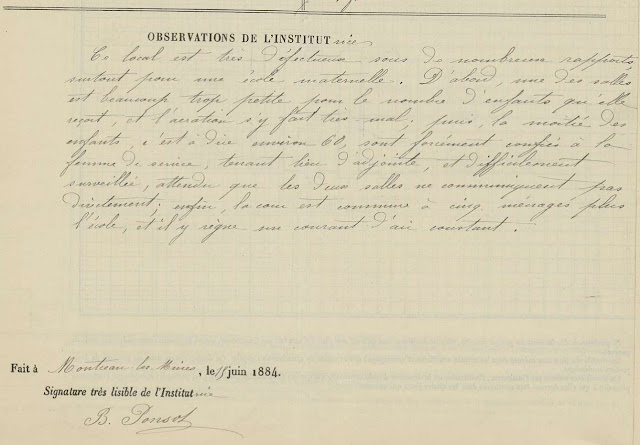 OBSERVATIONS DE L'INSTITUTrice
Ce local est très défectueux sous de nombreux rapports,
surtout pour une école maternelle. D'abord, une des salles
est beaucoup trop petite pour le nombre d'enfants qu'elle
reçoit, et l'aération s'y fait très mal; puis, la moitié des
enfants, c'est à dire environ 60, sont forcément confiés à la
femme de service, tenant lieu d'adjointe, et difficilement
surveillée, attendu que les deux salles ne communiquent pas
directement; enfin, la cour est commune à cinq ménages plus
l'école, et il y règne un courant d'air constant.
Fait à Montceau les Mines, le 15 juin 1884.
Signature très lisible de l'Institutrice
B. Ponsot